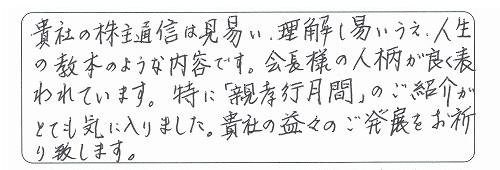 貴社の株主通信は見易い、理解し易いうえ、人生
の教本のような内容です。会長様の人柄が良く表
われています。特に「親孝行月間」のご紹介が
とても気に入りました。貴社の益々のご発展をお祈
り致します。